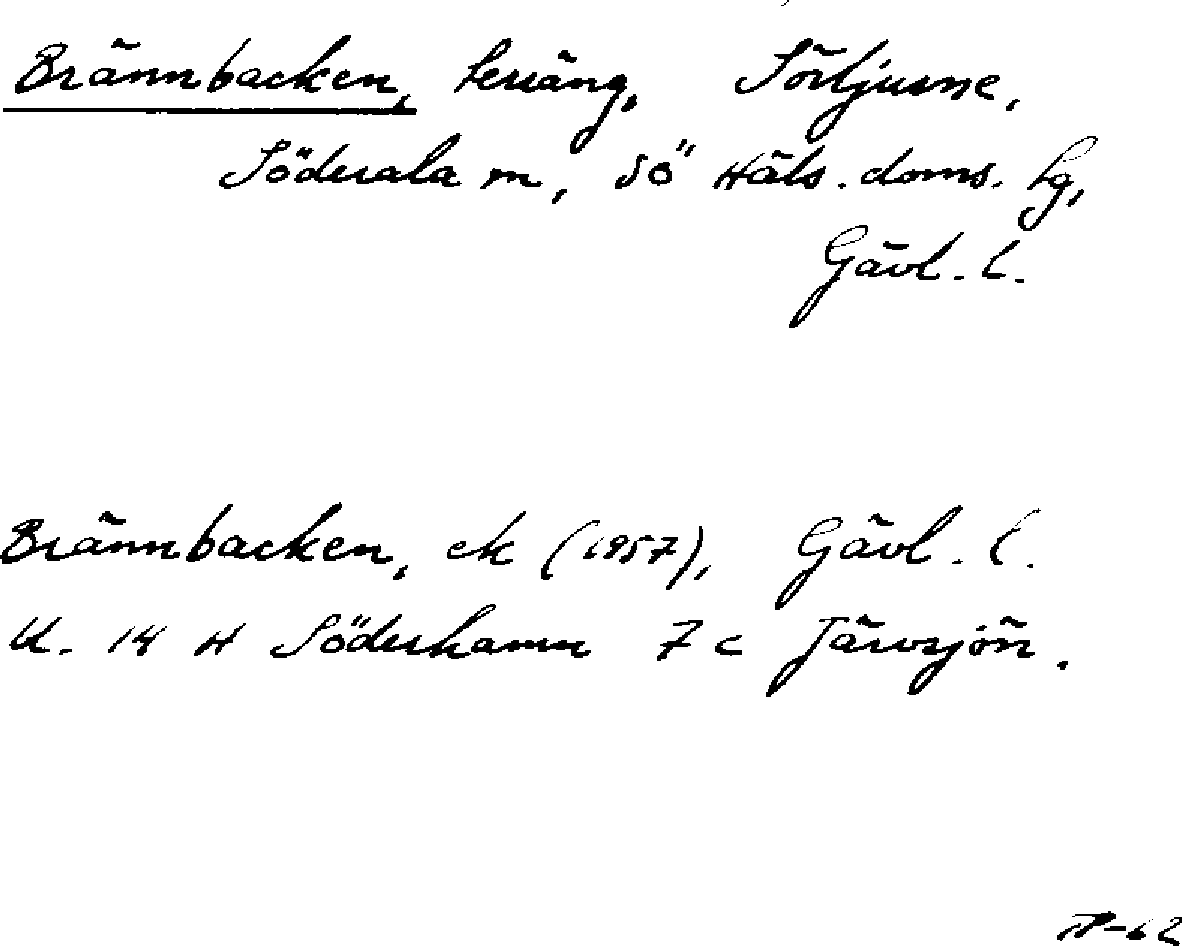 Brännbacken, terräng, Sörljusne,
Söderala sn, Sö Häls. doms. tg,
Gävl. l.
Brännbacken, ek (1957), Gävl. l.
U. 14 H Söderhamn 7 c Järvsjön.